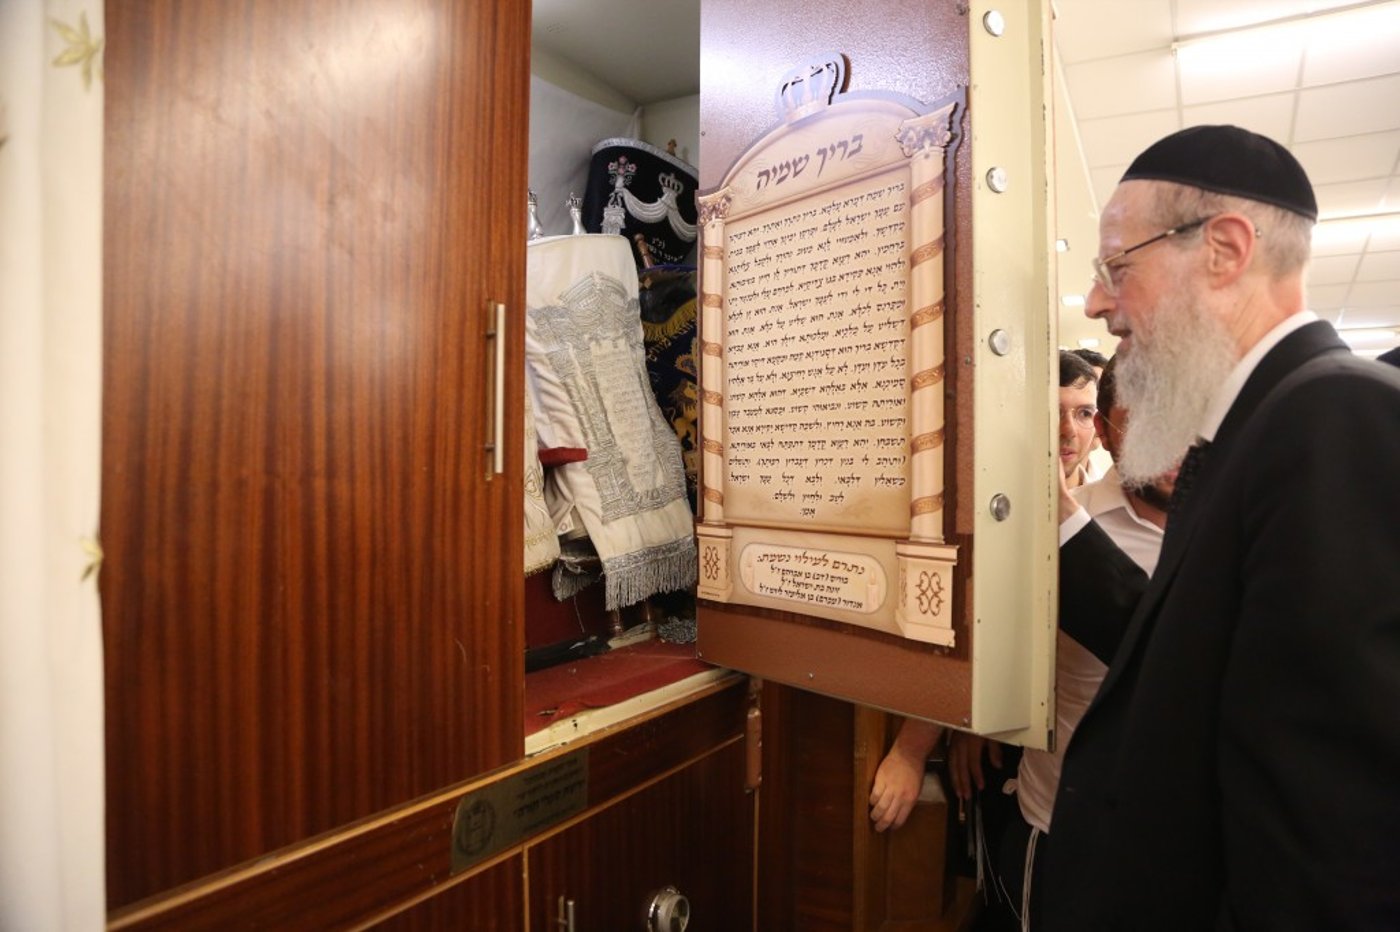 בריך שמיה
בריך שמה דמרא עלמא. בריך כתרך ואתרך. יהא רעותך
עם עמך ישראל לעלם. ופרקן ימינך אחזי לעמך בבית
מקדשך. ולאמטויי לנא מטוב נהורך ולקבל צלותנא
ברחמין. יהא רעוא קדמך דתוריך לן חיין בטיבותא.
ולהוי אנא פקידא בגו צדיקיא. למרחם עלי ולמנטר יתי
וית כל די לי ודי לעמך ישראל. אנת הוא זן לכלא
ומפרנס לכלא. אנת הוא שליט על כלא. אנת הוא
דשליט על מלכיא. ומלכותא דילך היא. אנא עבדא
דקדשא בריך הוא דסגידנא קמה ומקמא דיקר אוריתה
בכל עדן ועדן. לא על אנש רחיצנא. ולא על בר אלהין
סמיכנא. אלא באלהא דשמיא. דהוא אלהא קשוט.
ואוריתה קשוט. ונביאוהי קשוט. ומסגא למעבד טבון
וקשוט. בה אנא רחיץ. ולשמה קדישא יקירא אנא אמר
תשבחן. יהא רעוא קדמך דתפתח לבאי באוריתא.
(ותיהב לי בנין דכרין דעבדין רעותך). ותשלים
משאלין דלבאי. ולבא דכל עמך ישראל.
לטב ולחיין ולשלם.
אמן.
נתרם לעילוי נשמת:
בוריס (דב) בן אברהם ז"ל
זינה בת ישראל ז"ל